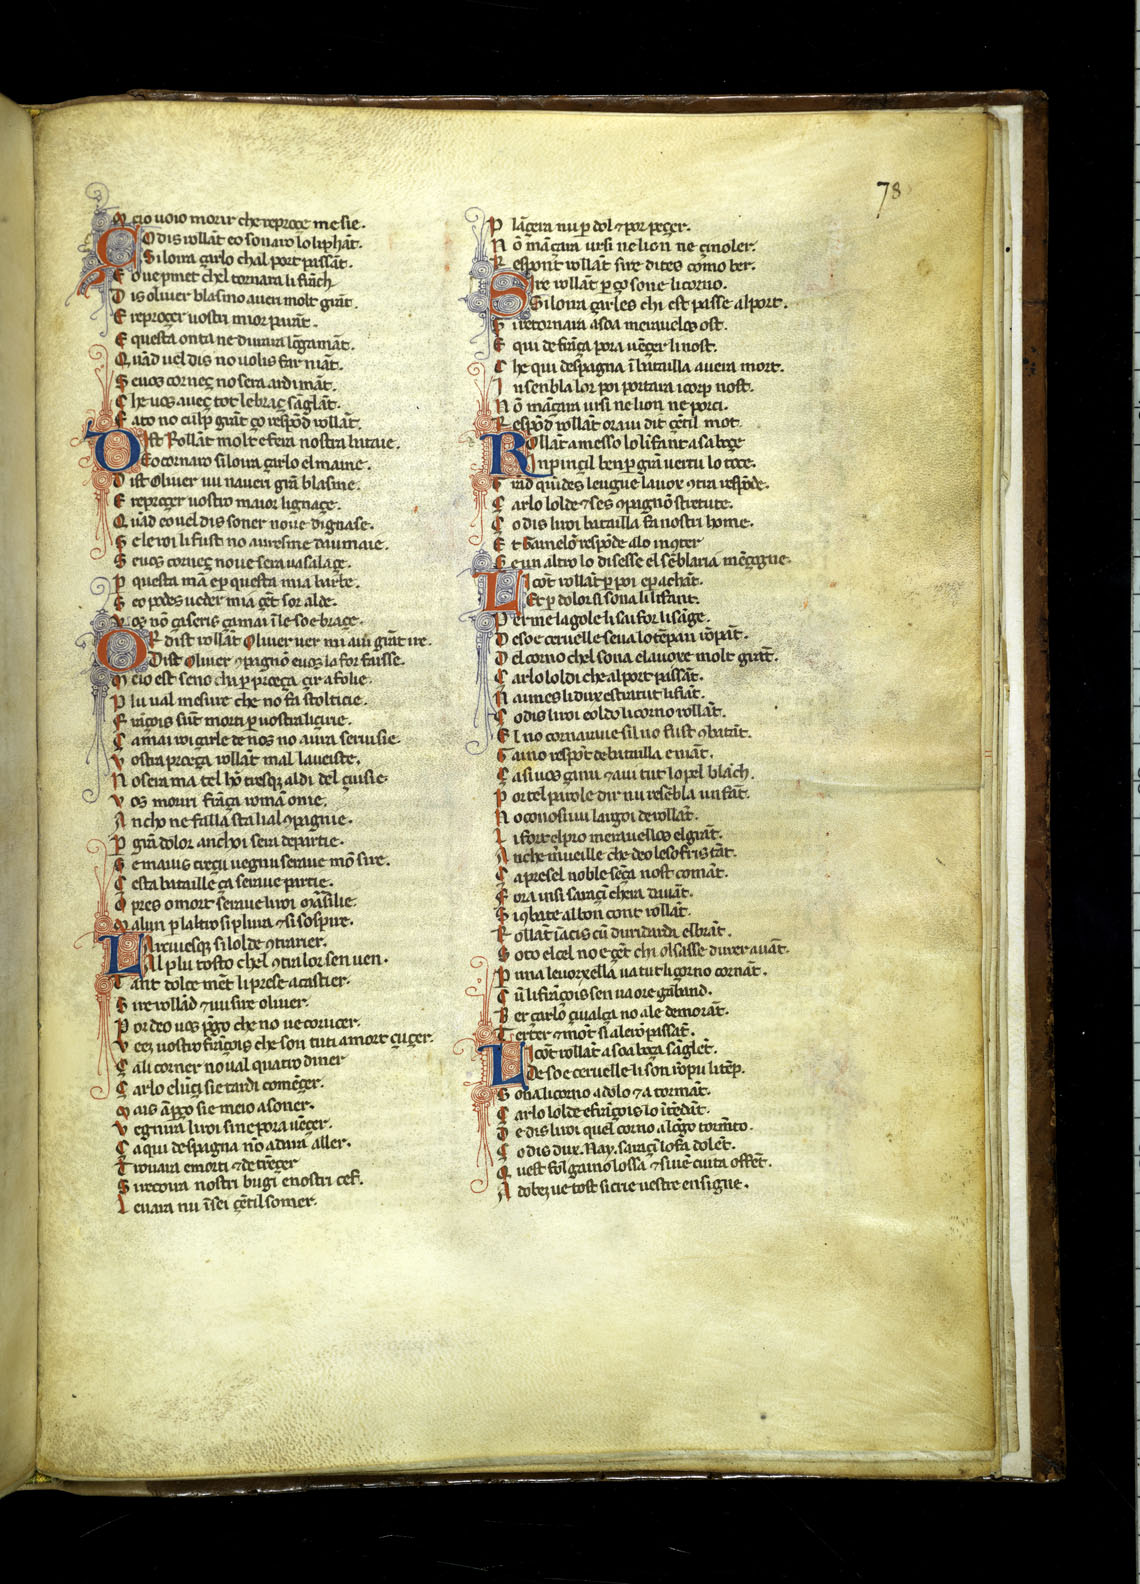 78
M eio uoio morir che reproçe me sie.
C O dis rollãt eo sonaro lo liphãt.
S i loira çarlo chal port passãt.
E o ue pmet chel tornara li frãch
D is oliuer blasmo aueri molt grãt.
E reproçer uostri mior parãt.
E questa onta ne durara lõgamãt.
Q uãd uel dis no uolis far niãt.
S euos corneç no sera ardimãt.
C he uos aueç tot le braç sãglãt.
E ato no culp grãt ço respõd rollãt.
D Ist Rollãt molt e fera nostra bataie.
E o cornaro si loira çarlo el maine.
D ist Oliuer nu naueri grã blasme.
E reproçer uostro maior lignaçe.
Q uãd eo uel dis soner no ue dignase.
S e le roi li fust no auresme daumaie.
S euos corneç no ue sera uasalaçe.
p questa mã e p questa mia barbe.
S eo podes ueder mia çẽt sor alde.
V os nõ çaseris çamai ĩ le soe braçe.
O R dist rollãt Oliuer uer mi aui grãt ire.
D ist Oliuer ꝯpagnõ euos la for faisse.
M eio est seno chi p proeça çir a folie.
P lu ual mesure che no fa stolticie.
F rãçois sũt morti p uostra liçirie.
C amai roi çarle de nos no aura seruisie.
V ostra proeça rollãt mal laueiste.
N o sera ma tel hõ tresqz al di del çuisie.
V os moriri frãça romã onie.
A ncho ne falla sta lial ꝯpagnie.
P grã dolor anchoi sera departie.
S e mauis creçu uegnu seraue mõ sire.
C esta bataille ça seraue partie.
O pres o mort seraue li roi Marsilie.
M alun p laltro si plura ⁊ si sospire.
L Arciuesqz si lolde ꝯtrarier.
A l plu tosto chel ꝯtra lor sen uen.
T ant dolce mẽt li prese a castier.
S ire rollãd ⁊ uu sire oliuer.
P or deo uos prgo che no ue corucer.
V eez uostri frãçois che son tuti a mort çuçer.
C ali corner no ual quatro diner
C arlo e lũçi si e tardi comẽçer.
M ais ãpço si e meio a soner.
V egnira li roi si ne pora uẽçer.
C aqui despagna nõ adura aller.
T rouara e morti ⁊ de trẽçer
S i recoura nostri bugi e nostri cef.
L euara nu ĩ sei çẽtil somer.
P lãçera nu p dol ⁊ por peçer.
N õ mãçara ursi ne lion ne çinoler.
R espont rollãt sire dites como ber.
S Ire rollãt p ço sone li corno.
S i loira çarles chi est passe al port.
S i retornara a soa merauelos ost.
E qui de frãça pora uẽçer li nost.
C he qui despagna ĩ batailla auera mort.
I n senbla lor poi portara i corp nost.
N õ mãçara ursi ne lion ne porci.
R espõd rollãt oraui dit çẽtil mot.
R Ollãt a messo lo lifant a sa boçe
I npinçil ben p grã uertu lo toce.
T rãd quides leugue la uox ꝯtra respõde.
C arlo lolde ⁊ ses ꝯpagnõ stretute.
C o dis li roi batailla fa nostri home.
E t Gainelõ respõde a lo inꝯter
S e un altro lo disesse el sẽblaria mẽçogne.
L I cõt rollãt p poi e p achãt.
E t p dolor si sona li lifant.
P er me la gole li saì for li sãge.
D e soe ceruelle seua lo tẽpan rõpãt.
D el corno chel sona e la uoxe molt grãt.
C arlo loldi che al port passãt.
N aimes li dux escritut li frãt.
C o dis li roi eo ldo li corno rollãt.
E l no cornaraue sil no fust ꝯbatãt.
G aino respõt de batailla e niãt.
C a si uos çanu ⁊ aui tut lo pel blãch.
P or tel parole dir nu resẽbla un fãt.
N o conosi uu largoi de rollãt.
L i fort el pro merauellos el grãt.
A nche mrueille che deo le sofris tãt.
C a presel noble sẽça nost comãt.
F ora insi saraçĩ chera dauãt.
S i ꝯbate al bon cont rollãt.
R ollãt ĩacis cũ duridarda el brãt.
S oto el cel no e çẽt chi olsasse durer auãt.
P una leuorxella ua tut li çorno cornãt.
C ũ li frãçois sen ua ore gaband.
B er çarlo çiualça no ale demorãt.
T erter ⁊ mõt si alerõ passãt.
L I cõt rollãt a soa boça sãglẽt.
D e soe ceruelle li son rõpu li tẽp.
S ona li corno a dolo ⁊ a tormãt.
C arlo lolde e frãçois lo ĩtẽdãt.
D e dis li roi quel corno a lõgo tormẽto.
C o dis dux .Nay. saraçĩ lo fa dolẽt.
Q uest fol gaino lossa ⁊ siuẽ cuita offẽt.
A dobez ue tost si crie uestre ensigne.